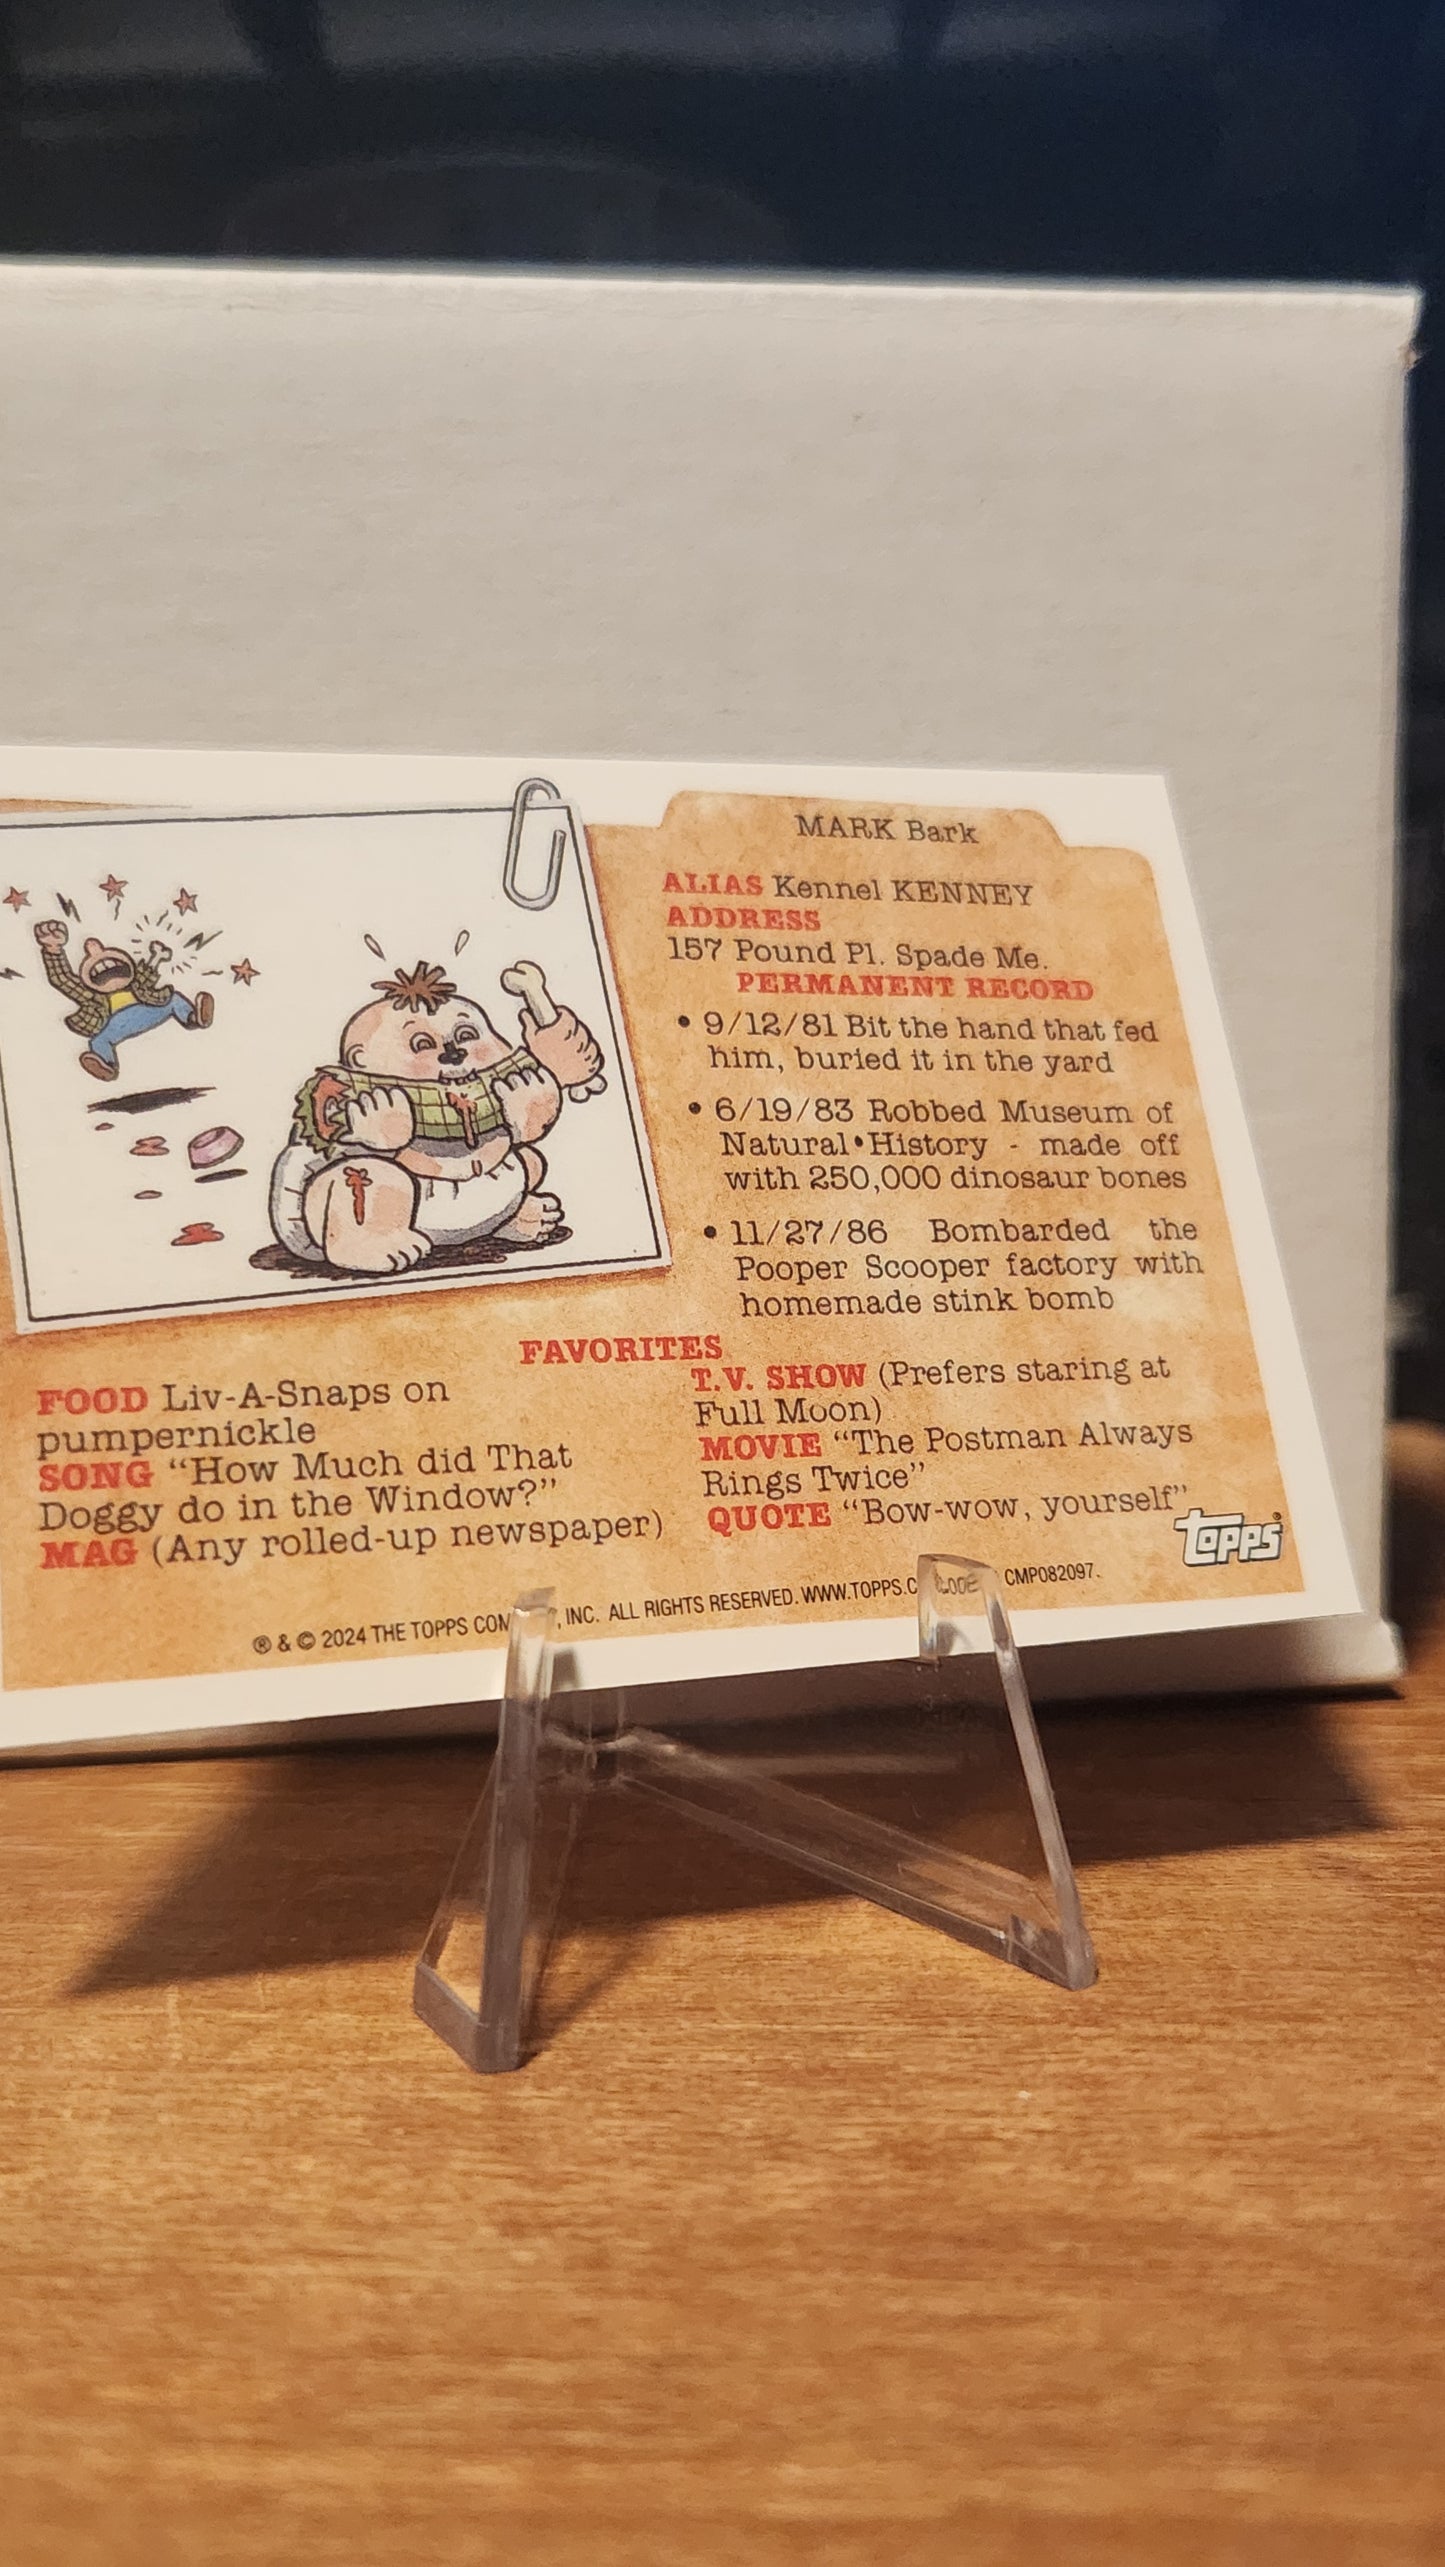 MARK Bark
ALIAS Kennel KENNEY
ADDRESS
157 Pound Pl. Spade Me.
PERMANENT RECORD
• 9/12/81 Bit the hand that fed
him, buried it in the yard
• 6/19/83 Robbed Museum of
Natural•History - made off
with 250,000 dinosaur bones
• 11/27/86 Bombarded the
Pooper Scooper factory with
homemade stink bomb
FAVORITES
FOOD Liv-A-Snaps on
pumpernickle
SONG "How Much did That
Doggy do in the Window?"
MAG (Any rolled-up newspaper)
T.V. SHOW (Prefers staring at
Full Moon)
MOVIE "The Postman Always
Rings Twice"
QUOTE "Bow-wow, yourself"
topps®
® & © 2024 THE TOPPS INC. ALL RIGHTS RESERVED. CMP082097.